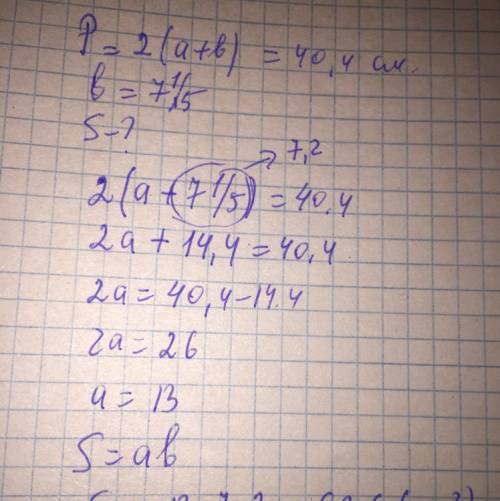 P = 2(a+b) = 40,4 см.
b = 7 1/5
S-?
7,2
2(a + 7 1/5) = 40.4
2a + 14,4 = 40,4.
2a = 40,4 - 14.4
2a = 26
a = 13
S = ab